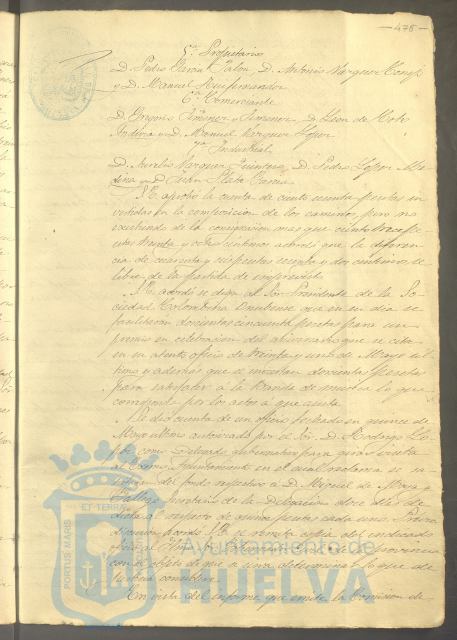 —476—
5ª Propietario
D. Pedro Garcia Jalon, D. Antonio Vazquez
y D. Manuel
6ª Comerciante
D. Gregorio Jimenez y Jimenez, D. Leon de
y D. Manuel Vazquez Lopez
7ª Industrial
D. Aurelio Vazquez Quintero, D. Pedro Lopez Me-
dina y D. Juan Plata Garcia
Se aprobó la cuenta de ciento pesetas in-
vertidas en la composicion de los caminos, pero no
existiendo de la consignacion mas que ciento trece pe-
setas treinta y ocho centimos acordó que la diferen-
cia de cuarenta y seis pesetas y dos centimos se
libre de la partida de imprevistos.
Se acordó se diga al Sor. Presidente de la So-
ciedad Colombina Onubense que en su dia se
facilitarán doscientas cincuenta pesetas para un
premio en celebracion del aniversario que se cita
en su atento oficio de treinta y uno de Mayo úl-
timo y además que se doscientas pesetas
para satisfacer á la banda de musica lo que
corresponda por los actos á que asista.
Se dió cuenta de un oficio fechado en quince de
Mayo último autorizado por el Sor. D. Rodrigo
como Delegado gubernativo para girar visita
al Excmo. Ayuntamiento en el cual reclama se
del fondo respectivo á D. Miguel de Moya
Secretario de la Delegacion doce dias de
dietas al respecto de quince pesetas cada uno.
Se remita copia del indicado
oficio al de la provincia
con el objeto de que á una determine lo que de
justicia considere.
En vista del informe que emite la Comision de
PORTUS MARIS
ET TERRAE
Ayuntamiento de
HUELVA